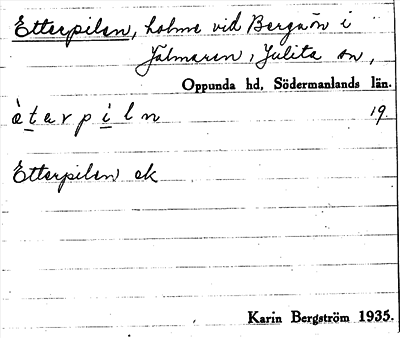 Etterpilen, holme vid Bergaön i
Jälmaren, Julita sn,
Oppunda hd, Södermanlands län.
è t e r p i l n 19.
Etterpilen ek
Karin Bergström 1935.